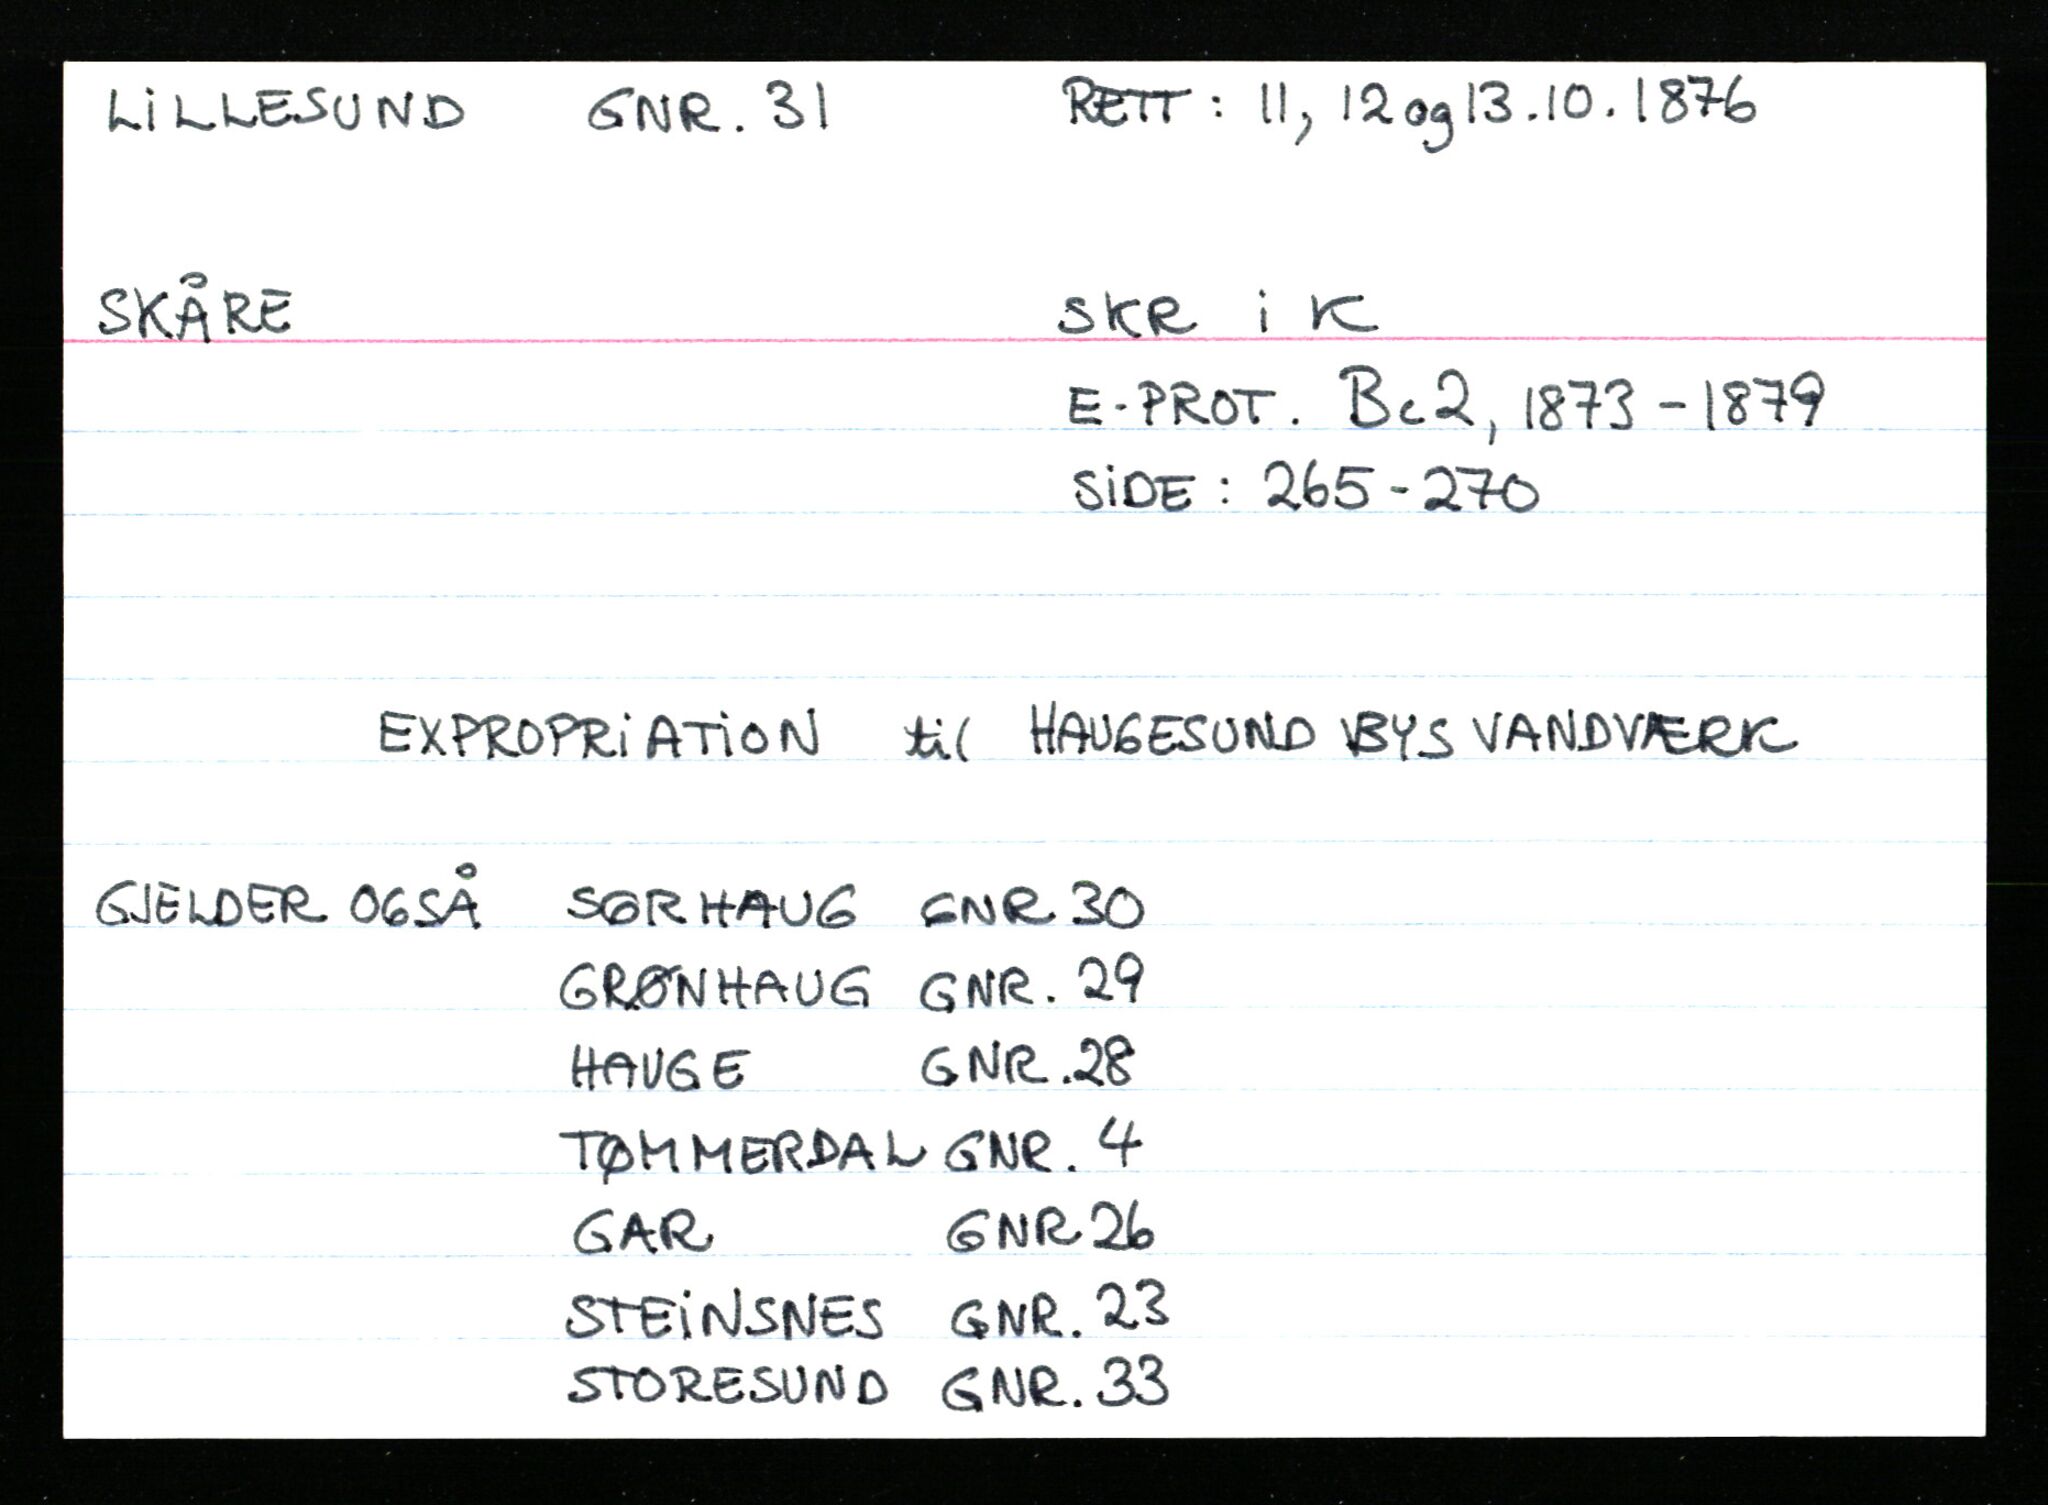 LILLESUND GNR. 31 RETT: 11, 12 og 13.10.1876
SKÅRE SKR i K
E-PROT. Bc2, 1873-1879
SIDE: 265-270
EXPROPRIATION til HAUGESUND BYS VANDVÆRK
GJELDER OGSÅ SØRHAUG GNR 30
GRØNHAUG GNR. 29
HAUGE GNR. 28
TØMMERDAL GNR. 4
GAR GNR 26
STEINSNES GNR. 23
STORESUND GNR. 33